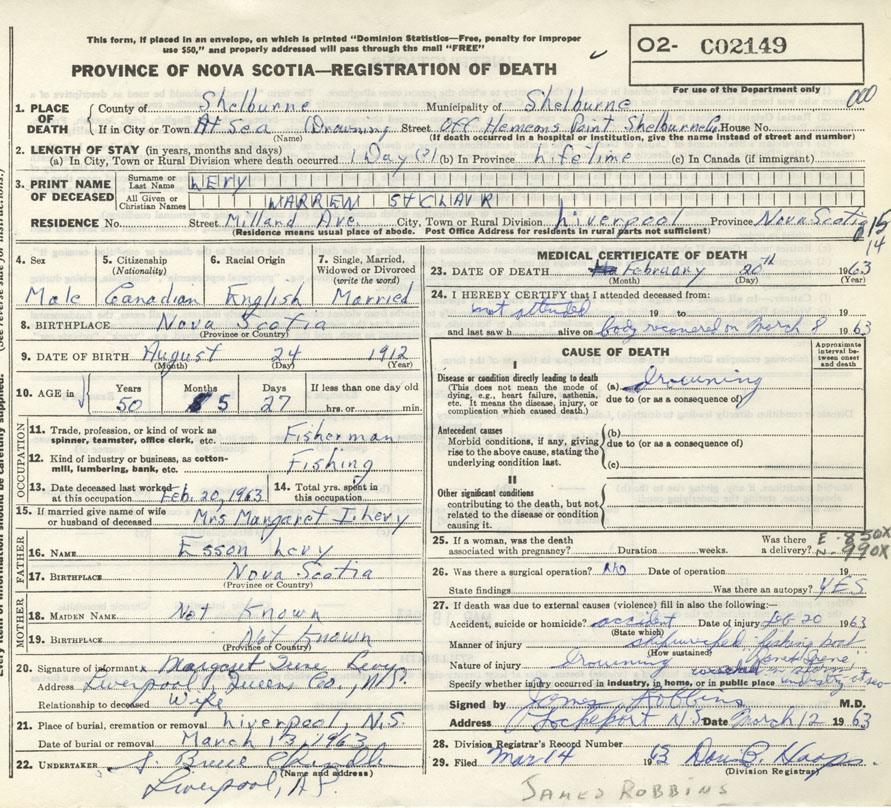 This form, if placed in an envelope, on which is printed "Dominion Statistics—Free, penalty for improper
use $50," and properly addressed will pass through the mail "FREE"
O2- C02149
PROVINCE OF NOVA SCOTIA—REGISTRATION OF DEATH
For use of the Department only
000
1. PLACE OF DEATH County of Shelburne Municipality of Shelburne
If in City or Town At Sea (Drowning Street Off Point Shelburne Co House No.
(Name) (If death occurred in a hospital or institution, give the name instead of street and number)
2. LENGTH OF STAY (in years, months and days)
(a) In City, Town or Rural Division where death occurred 1 Day (?) (b) In Province Lifetime (c) In Canada (if immigrant)
3. PRINT NAME OF DECEASED Surname or Last Name LEVY
All Given or Christian Names WARREN ST CLAIR
RESIDENCE No. Street Milland Ave. City, Town or Rural Division Liverpool Province Nova Scotia
(Residence means usual place of abode. Post Office Address for residents in rural parts not sufficient)
15
14
4. Sex 5. Citizenship (Nationality) 6. Racial Origin 7. Single, Married, Widowed or Divorced (write the word)
Male Canadian English Married
8. BIRTHPLACE Nova Scotia
(Province or Country)
9. DATE OF BIRTH August 24 1912
(Month) (Day) (Year)
10. AGE in Years Months Days If less than one day old
50 5 27 hrs. or min.
OCCUPATION
11. Trade, profession, or kind of work as spinner, teamster, office clerk, etc. Fisherman
12. Kind of industry or business, as cotton-mill, lumbering, bank, etc. Fishing
13. Date deceased last worked at this occupation Feb. 20, 1963 14. Total yrs. spent in this occupation
15. If married give name of wife or husband of deceased Mrs Margaret I. Levy
FATHER
16. NAME Esson Levy
17. BIRTHPLACE Nova Scotia
(Province or Country)
MOTHER
18. MAIDEN NAME Not Known
19. BIRTHPLACE Not Known
(Province or Country)
20. Signature of informant x Margaret Levy
Address Liverpool, Queens Co., N.S.
Relationship to deceased Wife
21. Place of burial, cremation or removal Liverpool, N.S.
Date of burial or removal March 13, 1963
22. UNDERTAKER S. Bruce Chandler
(Name and address)
Liverpool, N.S.
MEDICAL CERTIFICATE OF DEATH
23. DATE OF DEATH February 20th 1963
(Month) (Day) (Year)
24. I HEREBY CERTIFY that I attended deceased from:
not attended 19 to 19
and last saw h alive on body recovered on March 8 1963
CAUSE OF DEATH
Approximate interval between onset and death
I
Disease or condition directly leading to death
(This does not mean the mode of dying, e.g., heart failure, asthenia, etc. It means the disease, injury, or complication which caused death.)
(a) Drowning
due to (or as a consequence of)
Antecedent causes
Morbid conditions, if any, giving rise to the above cause, stating the underlying condition last.
(b)
due to (or as a consequence of)
(c)
II
Other significant conditions
contributing to the death, but not related to the disease or condition causing it.
25. If a woman, was the death associated with pregnancy? Duration weeks. Was there a delivery?
E-850X
N-990X
26. Was there a surgical operation? No Date of operation 19
State findings Was there an autopsy? YES
27. If death was due to external causes (violence) fill in also the following:
Accident, suicide or homicide? accident Date of injury Feb 20 1963
(State which)
Manner of injury shipwrecked fishing boat
(How sustained)
Nature of injury Drowning
Specify whether injury occurred in industry, in home, or in public place industry at sea
Signed by James Robbins M.D.
Address Lockeport N.S. Date March 12 1963
28. Division Registrar's Record Number
29. Filed Mar 14 1963
(Division Registrar)
JAMES ROBBINS